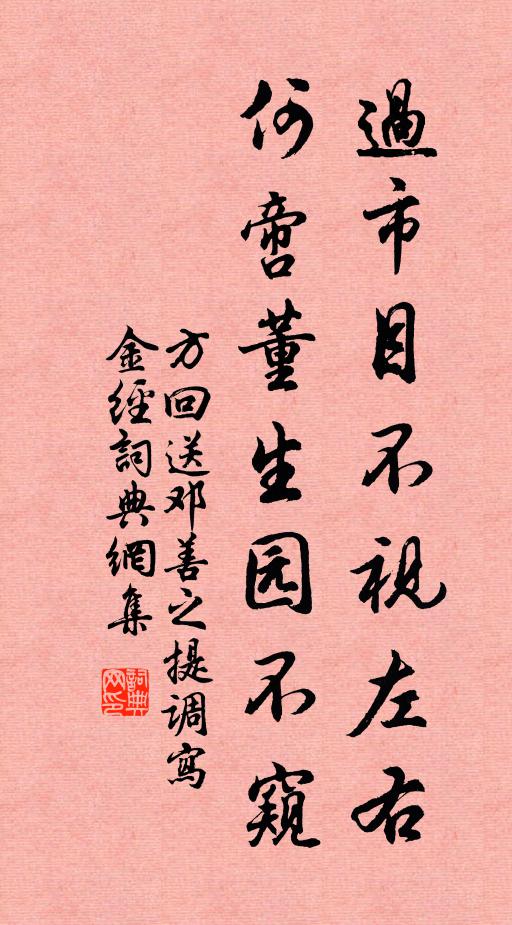 過市目不視左右
何啻董生园不窺
方回送邓善之提调寫
金經詞典網集
詞典网印